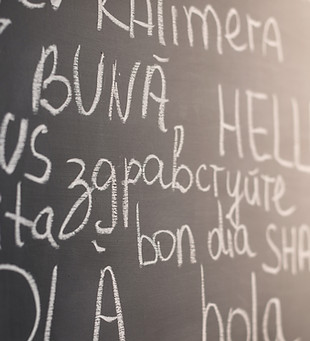 KAlimerA
BUNĂ HELL
us здравстуйте
bon dia SHA
hola